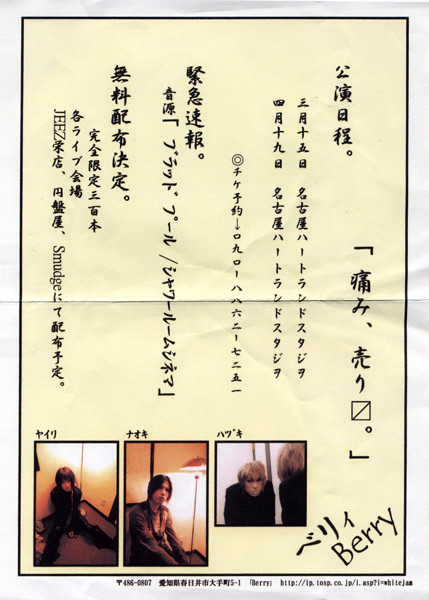 公演日程。
「痛み、売り〼。」
三月十五日 名古屋ハートランドスタジヲ
四月十九日 名古屋ハートランドスタジヲ
◎チケ予約→〇九〇ー八八六二ー七二五一
緊急速報。
音源「ブラッド プール/シャワールームシネマ」
無料配布決定。
完全限定三百本
各ライブ会場
JEEZ栄店、円盤屋、Smudgeにて配布予定。
ヤイリ
ナオキ
ハヅキ
ベリィ
Berry
〒486-0807 愛知県春日井市大手町5-1 「Berry」 http://ip.tosp.co.jp/i.asp?i=whitejam